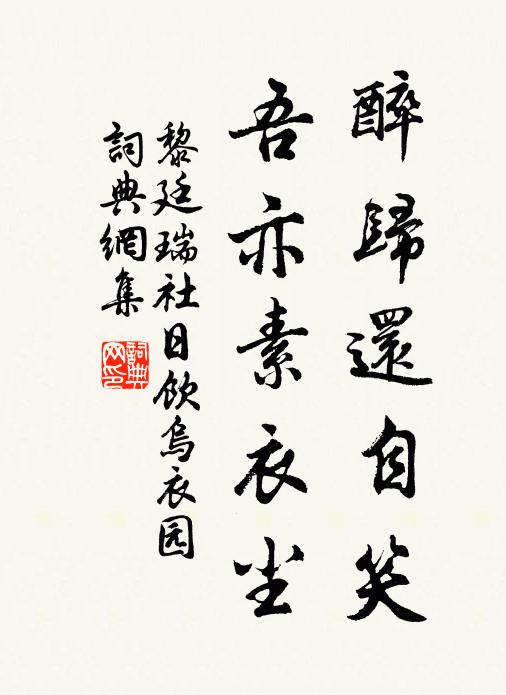 醉歸還自笑
吾亦素衣尘
黎廷瑞社日飲烏衣园
詞典網集
詞典
网印